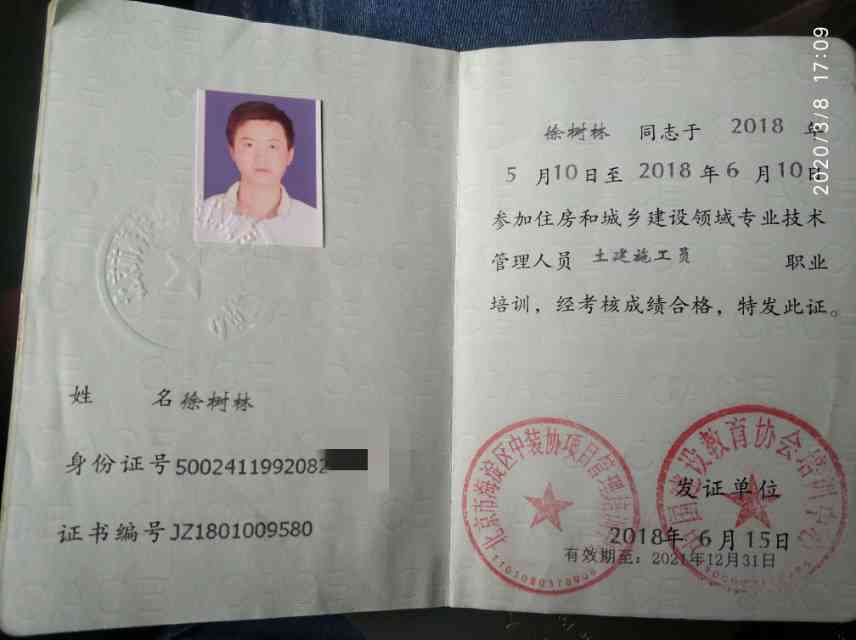 姓 名 徐树林
身份证号 5002411992082
证书编号 JZ1801009580
徐树林 同志于 2018 年
5 月 10 日至 2018 年 6 月 10 日
参加住房和城乡建设领域专业技术
管理人员 土建施工员 职业
培训，经考核成绩合格，特发此证。
北京市海淀区中装协项目管理培训
建设教育协会培训中心
发证单位
2018年 6 月 15日
有效期至：2021年12月31日
2020/3/8 17:09